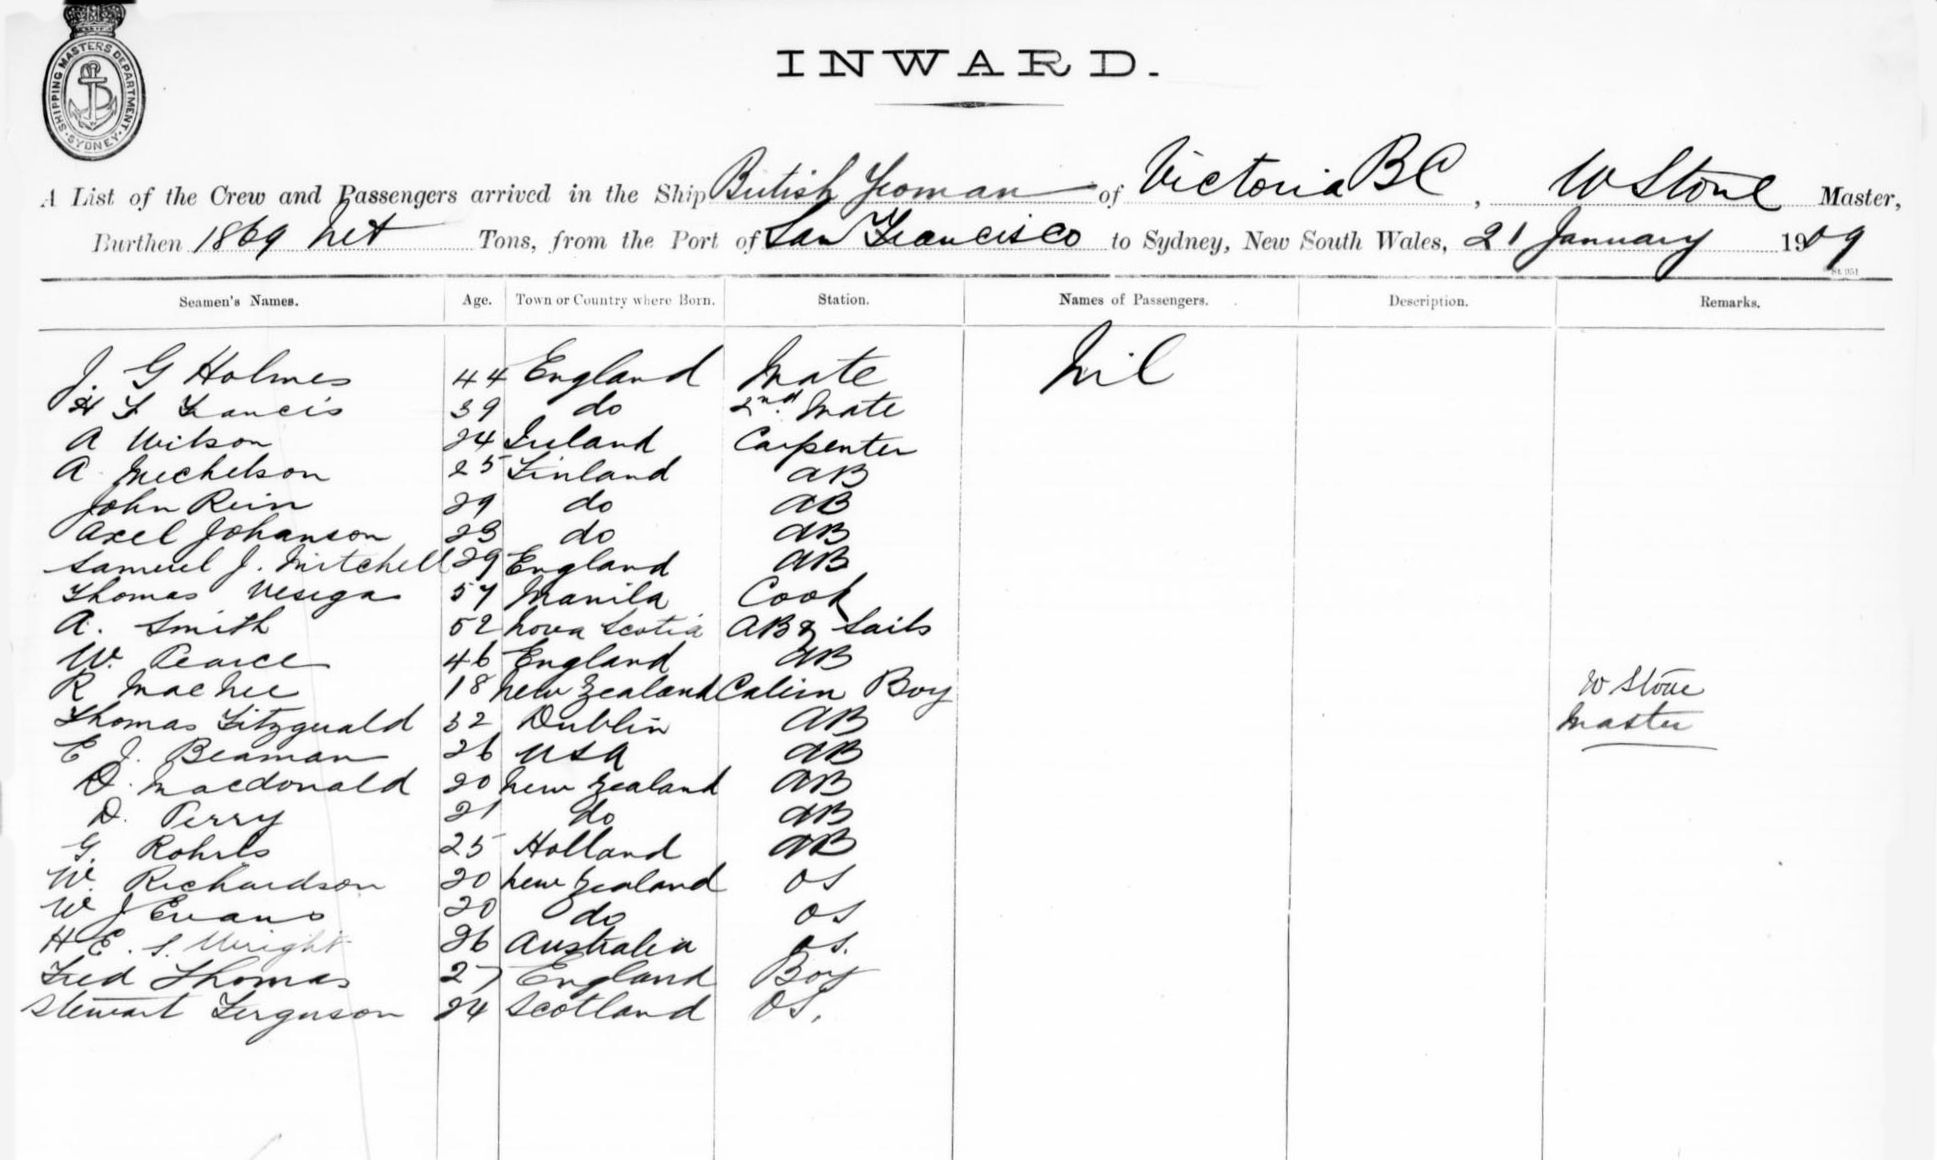 SHIPPING MASTERS DEPARTMENT. SYDNEY.
INWARD.
A List of the Crew and Passengers arrived in the Ship British Yeoman of Victoria BC, W Stone Master,
Burthen 1869 net Tons, from the Port of San Francisco to Sydney, New South Wales, 21 January 1909
St. 951
Seamen's Names. Age. Town or Country where Born. Station. Names of Passengers. Description. Remarks.
J. G Holmes 44 England Mate Nil
H F Francis 39 do 2nd Mate
A Wilson 24 Ireland Carpenter
A Michelson 25 Finland AB
John Rein 29 do AB
Axel Johanson 23 do AB
Samuel J. Mitchell 29 England AB
Thomas Vesiga 57 Manila Cook
A. Smith 52 Nova Scotia AB & Sails
W. Pearce 46 England AB
R MacNee 18 New Zealand Cabin Boy W Stone
Thomas Fitzgerald 32 Dublin AB Master
E J. Beaman 26 USA AB
D. Macdonald 20 New Zealand AB
D. Perry 21 do AB
G. Rohles 25 Holland AB
W. Richardson 20 New Zealand OS
W J Evans 20 do OS
H E. S. Wright 26 Australia OS.
Fred Thomas 27 England Boy
Stewart Ferguson 24 Scotland OS.